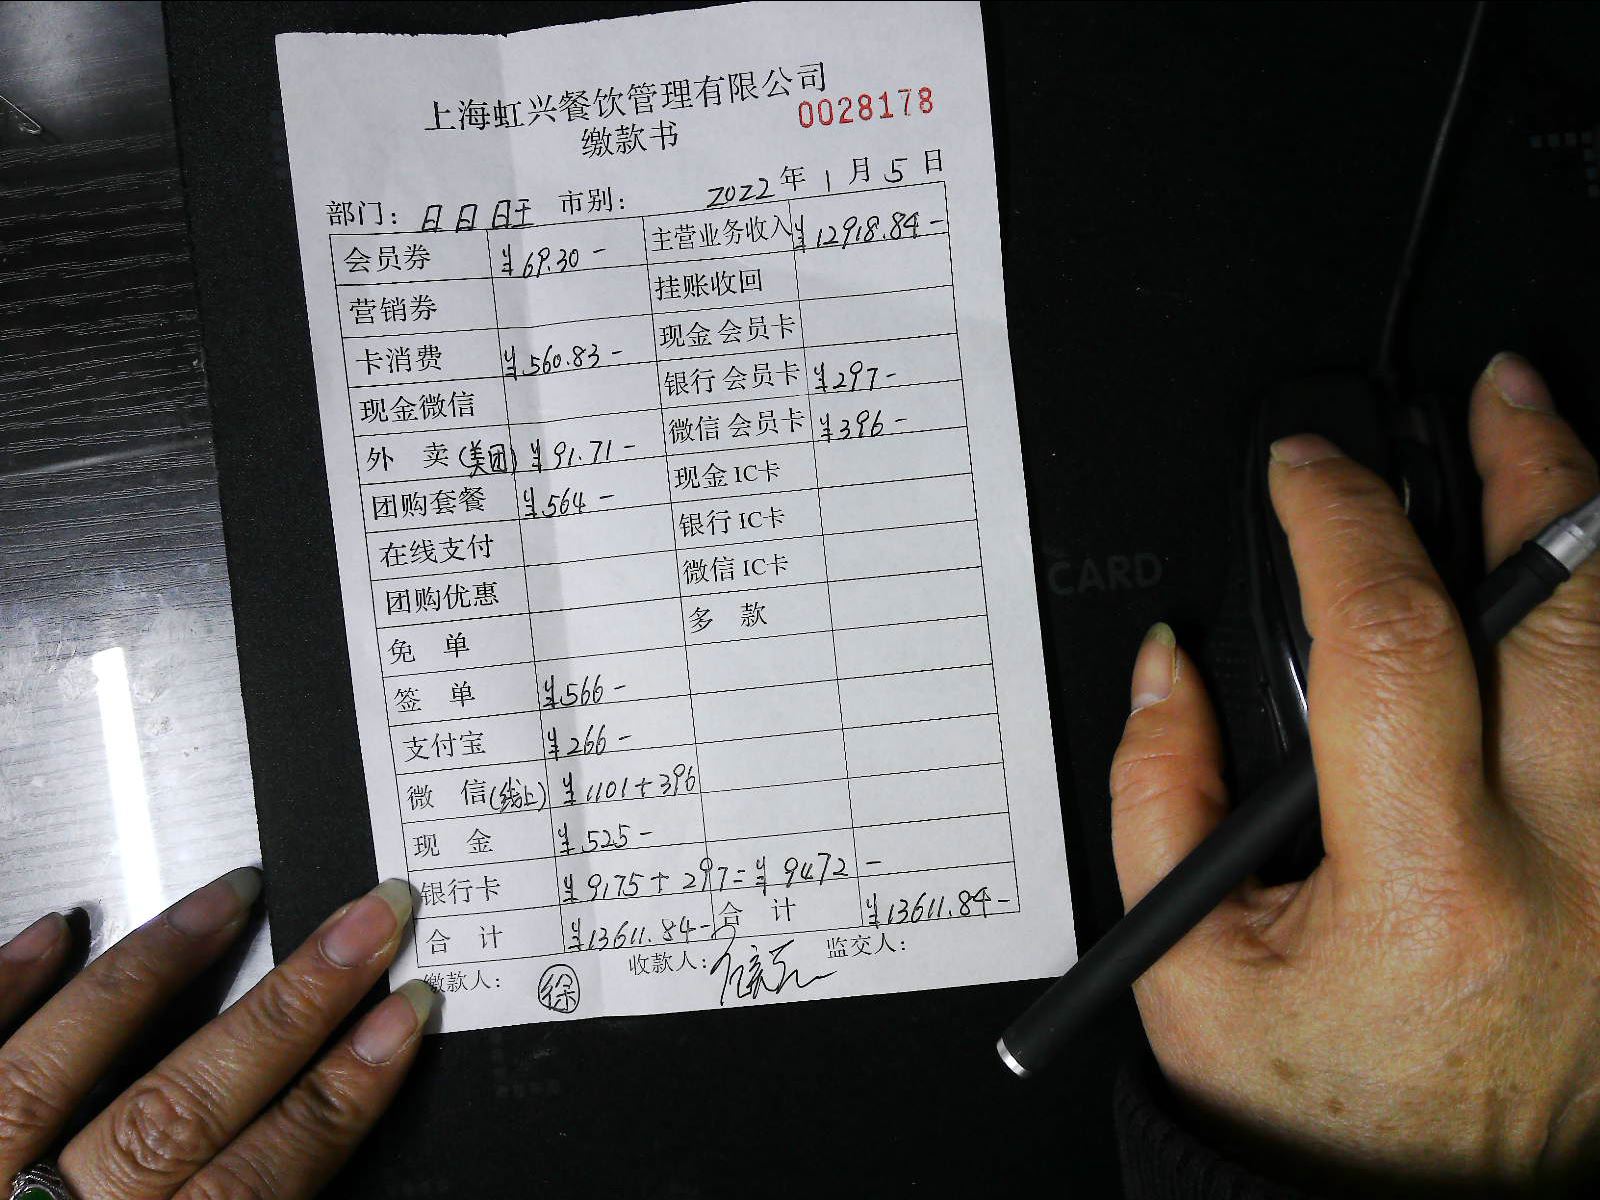 上海虹兴餐饮管理有限公司
0028178
缴款书
部门: 日日日王 市别: 2022年1月5日
会员券 ¥69.30- 主营业务收入 ¥12918.84-
营销券 挂账收回
卡消费 ¥560.83- 现金 会员卡
现金微信 银行 会员卡 ¥297-
外 卖(美团) ¥91.71- 微信 会员卡 ¥396-
团购套餐 ¥564- 现金 IC卡
在线支付 银行 IC卡
团购优惠 微信 IC卡
免 单 多 款
签 单 ¥566-
支付宝 ¥266-
微 信(线上) ¥1101+396
现 金 ¥525-
银行卡 ¥9175+297=¥9472-
合 计 ¥13611.84- 合 计 ¥13611.84-
缴款人: 徐 收款人: 监交人:
CARD